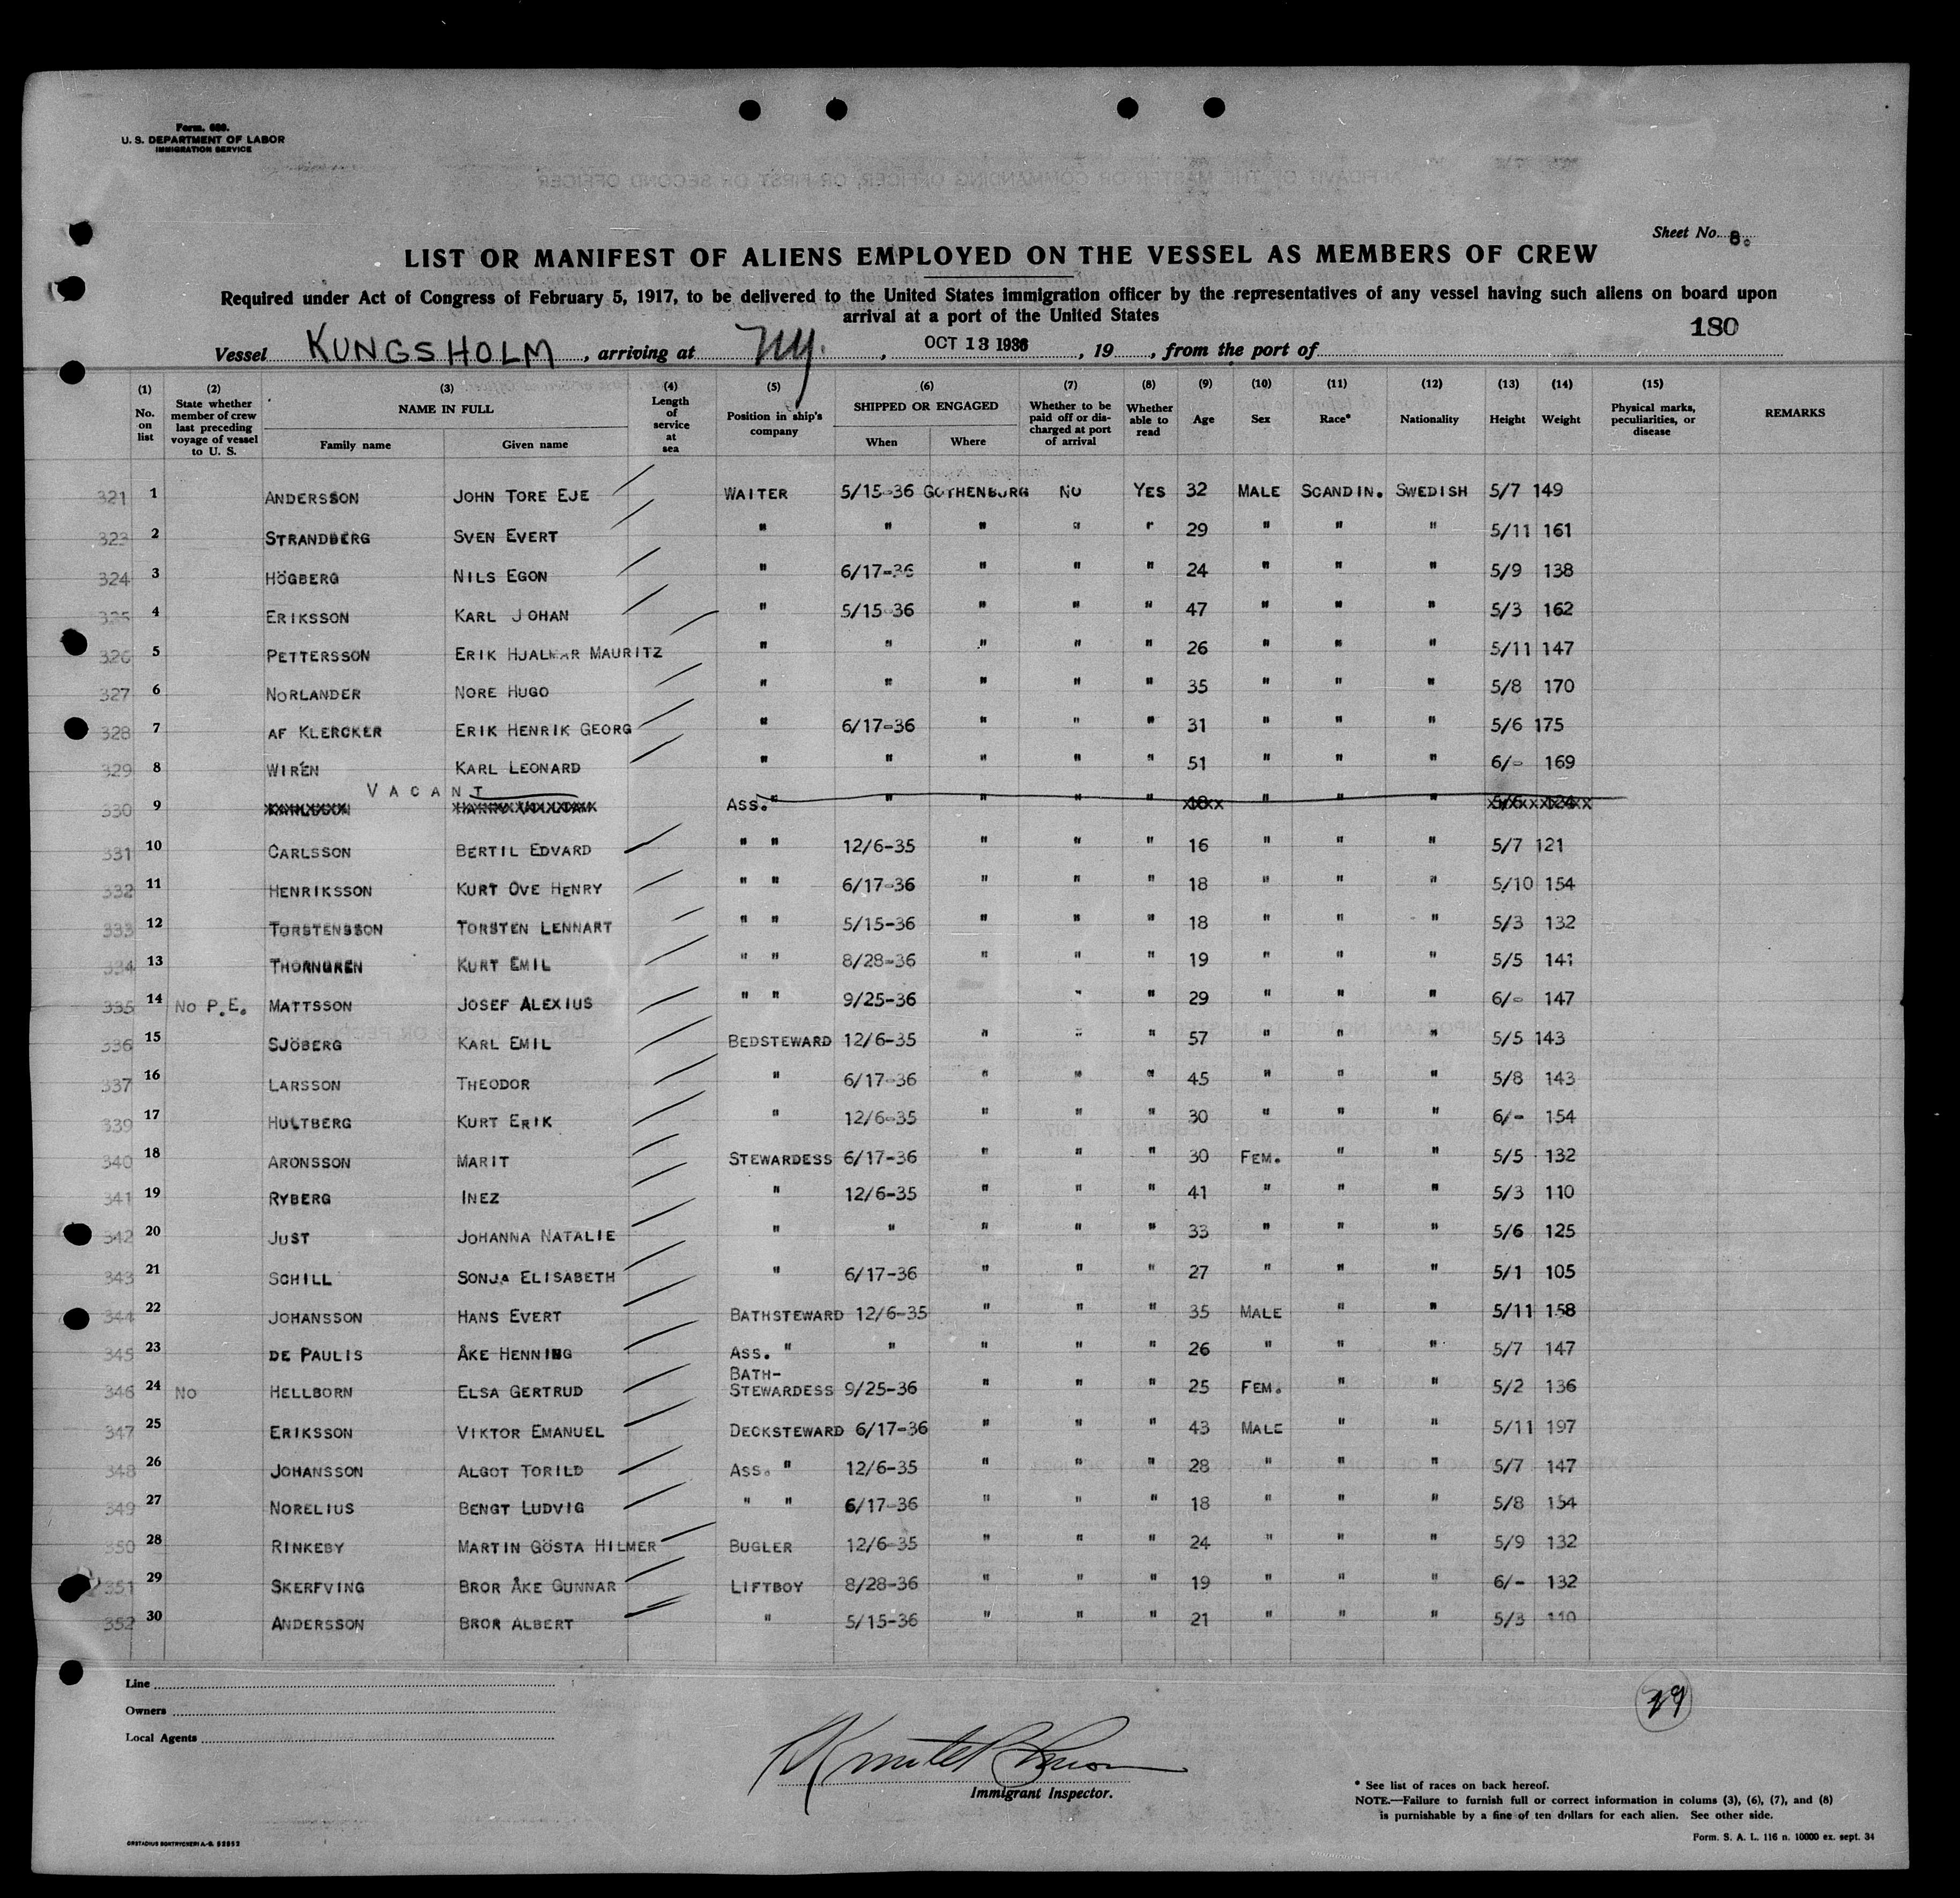 Form. 680.
U. S. DEPARTMENT OF LABOR
IMMIGRATION SERVICE
Sheet No. 8.
LIST OR MANIFEST OF ALIENS EMPLOYED ON THE VESSEL AS MEMBERS OF CREW
Required under Act of Congress of February 5, 1917, to be delivered to the United States immigration officer by the representatives of any vessel having such aliens on board upon
arrival at a port of the United States
180
Vessel KUNGSHOLM, arriving at NY., OCT 13 1936, 19, from the port of
(1) No. on list (2) State whether member of crew last preceding voyage of vessel to U. S. (3) NAME IN FULL Family name Given name (4) Length of service at sea (5) Position in ship's company (6) SHIPPED OR ENGAGED When Where (7) Whether to be paid off or discharged at port of arrival (8) Whether able to read (9) Age (10) Sex (11) Race* (12) Nationality (13) Height (14) Weight (15) Physical marks, peculiarities, or disease REMARKS
321 1 ANDERSSON JOHN TORE EJE WAITER 5/15-36 GOTHENBURG NO YES 32 MALE SCANDIN. SWEDISH 5/7 149
323 2 STRANDBERG SVEN EVERT " " " " " 29 " " " 5/11 161
324 3 HÖGBERG NILS EGON " 6/17-36 " " " 24 " " " 5/9 138
325 4 ERIKSSON KARL JOHAN " 5/15-36 " " " 47 " " " 5/3 162
326 5 PETTERSSON ERIK HJALMAR MAURITZ " " " " " 26 " " " 5/11 147
327 6 NORLANDER NORE HUGO " " " " " 35 " " " 5/8 170
328 7 AF KLERCKER ERIK HENRIK GEORG " 6/17-36 " " " 31 " " " 5/6 175
329 8 WIRÉN KARL LEONARD " " " " " 51 " " " 6/- 169
VACANT
330 9 ASS. " " " " " " " "
331 10 CARLSSON BERTIL EDVARD " " 12/6-35 " " " 16 " " " 5/7 121
332 11 HENRIKSSON KURT OVE HENRY " " 6/17-36 " " " 18 " " " 5/10 154
333 12 TORSTENSSON TORSTEN LENNART " " 5/15-36 " " " 18 " " " 5/3 132
334 13 THORNGREN KURT EMIL " " 8/28-36 " " " 19 " " " 5/5 141
335 14 NO P.E. MATTSSON JOSEF ALEXIUS " " 9/25-36 " " 29 " " " 6/- 147
336 15 SJÖBERG KARL EMIL BEDSTEWARD 12/6-35 " " " 57 " " " 5/5 143
337 16 LARSSON THEODOR " 6/17-36 " " " 45 " " " 5/8 143
339 17 HULTBERG KURT ERIK " 12/6-35 " " " 30 " " " 6/- 154
340 18 ARONSSON MARIT STEWARDESS 6/17-36 " " " 30 FEM. " " 5/5 132
341 19 RYBERG INEZ " 12/6-35 " " " 41 " " " 5/3 110
342 20 JUST JOHANNA NATALIE " " " " " 33 " " " 5/6 125
343 21 SCHILL SONJA ELISABETH " 6/17-36 " " " 27 " " " 5/1 105
344 22 JOHANSSON HANS EVERT BATHSTEWARD 12/6-35 " " " 35 MALE " " 5/11 158
345 23 DE PAULIS ÅKE HENNING ASS. " " " " " 26 " " " 5/7 147
346 24 NO HELLBORN ELSA GERTRUD BATH-STEWARDESS 9/25-36 " " " 25 FEM. " " 5/2 136
347 25 ERIKSSON VIKTOR EMANUEL DECKSTEWARD 6/17-36 " " " 43 MALE " " 5/11 197
348 26 JOHANSSON ALGOT TORILD ASS. " 12/6-35 " " " 28 " " " 5/7 147
349 27 NORELIUS BENGT LUDVIG " " 6/17-36 " " " 18 " " " 5/8 154
350 28 RINKEBY MARTIN GÖSTA HILMER BUGLER 12/6-35 " " " 24 " " " 5/9 132
351 29 SKERFVING BROR ÅKE GUNNAR LIFTBOY 8/28-36 " " " 19 " " " 6/- 132
352 30 ANDERSSON BROR ALBERT " 5/15-36 " " " 21 " " " 5/3 110
Line
Owners
Local Agents
29
Immigrant Inspector.
* See list of races on back hereof.
NOTE.—Failure to furnish full or correct information in colums (3), (6), (7), and (8)
is punishable by a fine of ten dollars for each alien. See other side.
Form. S. A. L. 116 n. 10000 ex. sept. 34